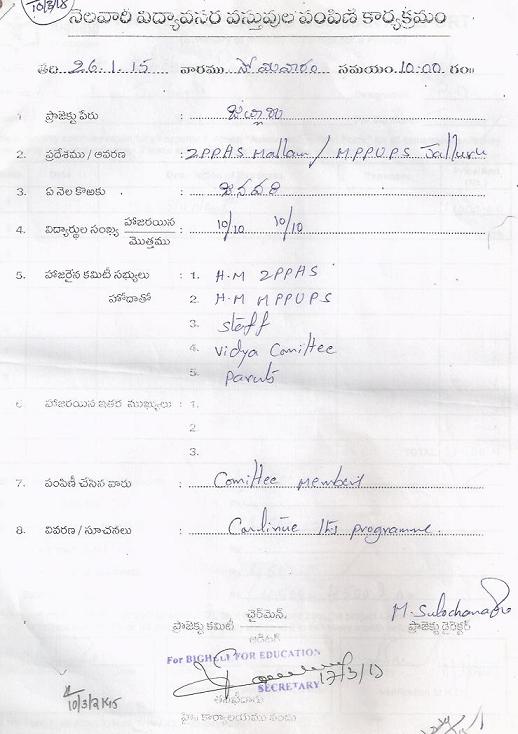 10/3/15
నెలవారి విద్యావసర వస్తువుల పంపిణి కార్యక్రమం
తేది 26.1.15 వారము సోమవారం సమయం 10.00 గం॥
1. ప్రాజెక్టు పేరు :
2. ప్రదేశము / ఆవరణ : ZPPHS Mallam / MPPUPS Jalluru
3. ఏ నెల కొఱకు : జనవరి
4. విద్యార్థుల సంఖ్య హాజరయిన / మొత్తము : 10/10 10/10
5. హాజరైన కమిటీ సభ్యులు : 1. H.M ZPPHS
హోదాతో 2. H.M MPPUPS
3. Staff
4. Vidya Comittee
5.
6. హాజరయిన ఇతర ముఖ్యులు : 1.
2
3.
7. పంపిణీ చేసిన వారు : Comittee Members
8. వివరణ / సూచనలు : Continue this programme.
M. Sulochana
ప్రాజెక్టు కమిటీ ఛైర్మెన్. / ఆడిటర్ ప్రాజెక్టు డైరెక్టర్
For BIGHELP FOR EDUCATION
SECRETARY 17/3/15
తనిఖీదారు
హై॥ కార్యాలయము నందు
10/3/2015